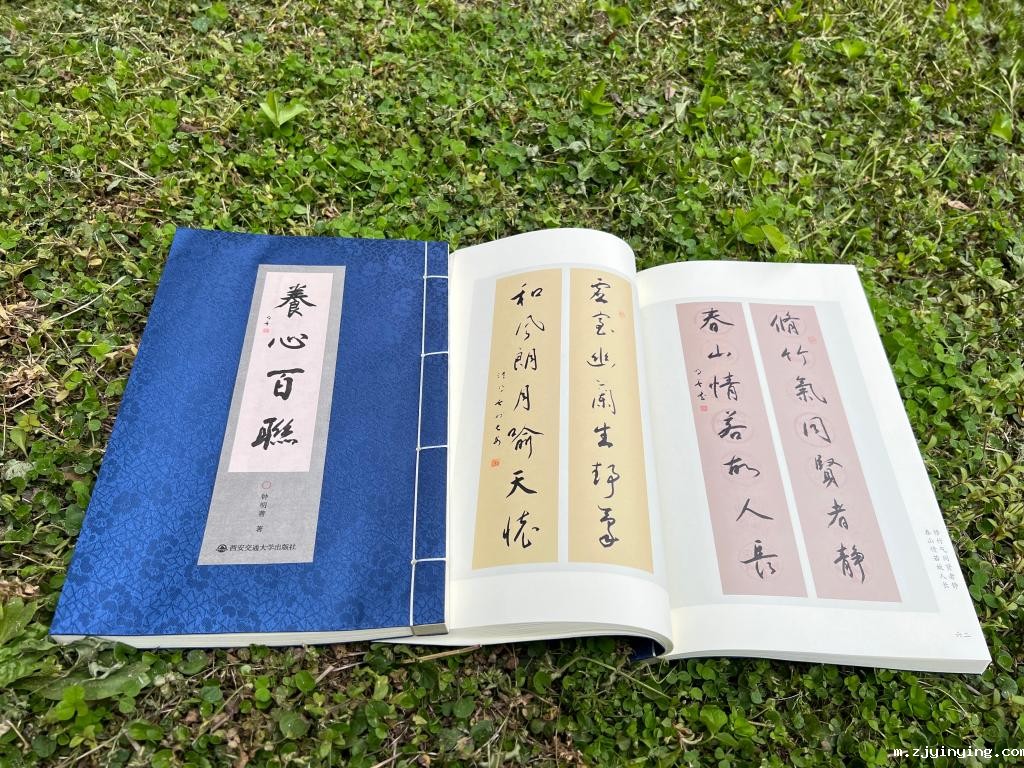 養心百聯
钟明善 著
西安交通大学出版社
虚室幽蘭生静氣
和風朗月喻天懷
脩竹氣同賢者静
春山情若故人長
修竹气同贤者静
春山情若故人长
六二
m.zjyinying.com